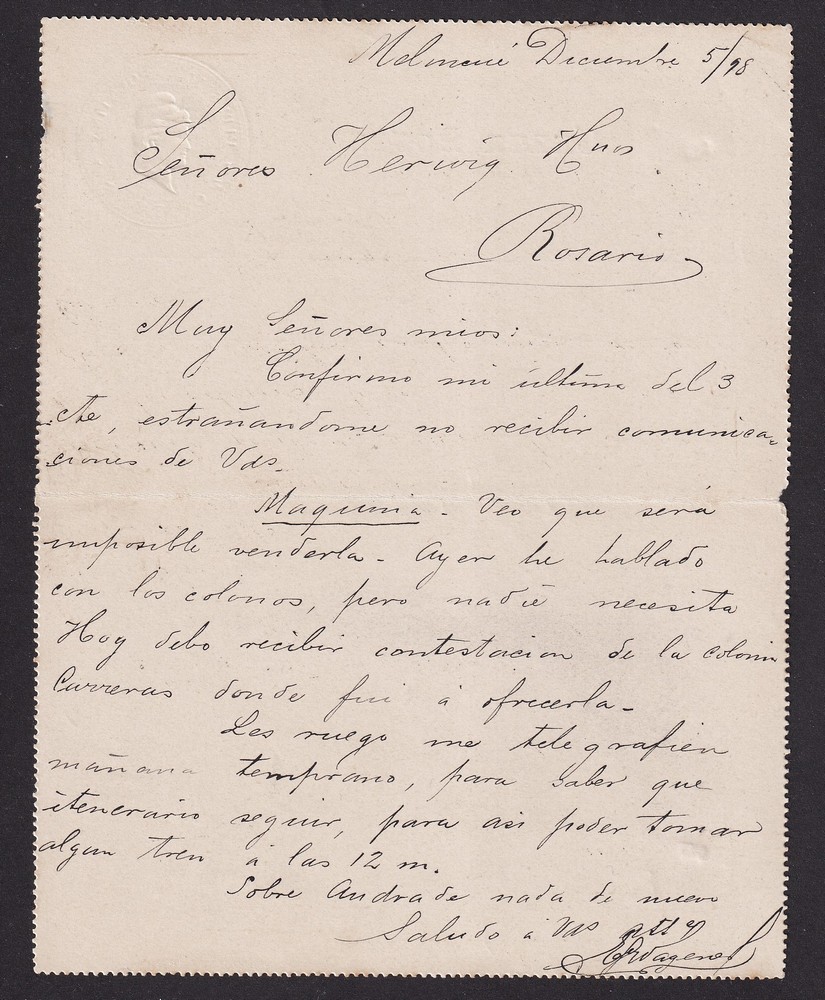 Melincué Diciembre 5/98
Señores Herwig Hnos
Rosario
Muy Señores mios:
Confirmo mi última del 3
cte, estrañandome no recibir comunica-
ciones de Vds.
Maquina - Veo que será
imposible venderla - Ayer he hablado
con los colonos, pero nadie necesita
Hoy debo recibir contestacion de la colonia
Carreras donde fui á ofrecerla -
Les ruego me telegrafien
mañana temprano, para saber que
itenerario seguir, para asi poder tomar
algun tren á las 12 m.
Sobre Andrade nada de nuevo
Saludo á Vds atte